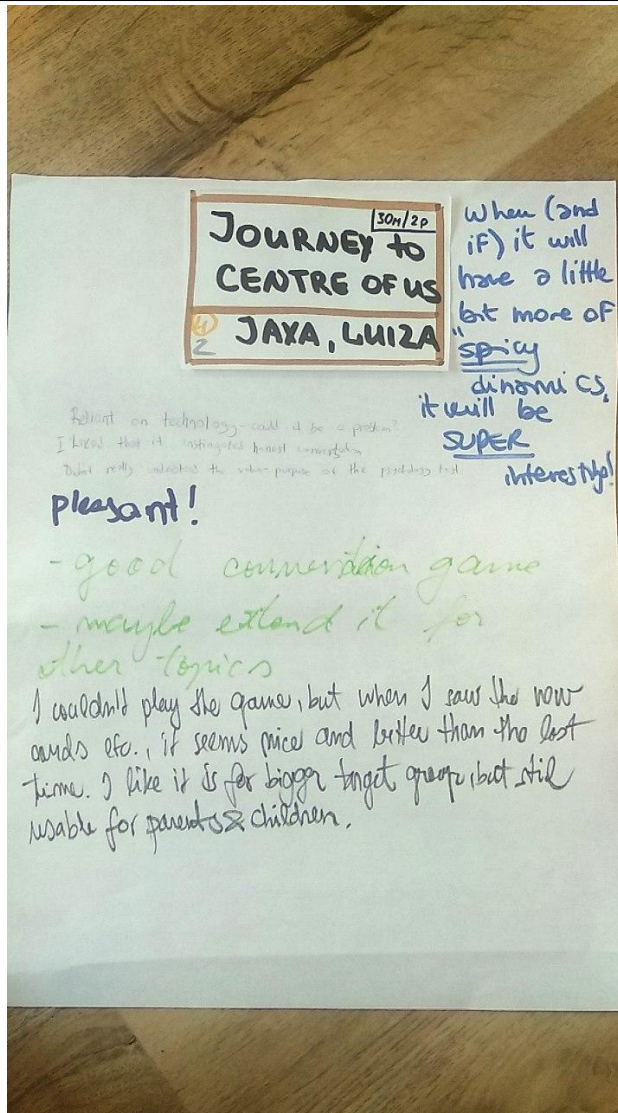 30m/2p
JOURNEY to
CENTRE OF US
4
2
JAXA, LUIZA
When (and
iF) it will
have a little
bit more of
"spicy
dinamics,
it will be
SUPER
interesting!
Reliant on technology - could it be a problem?
I liked that it instigated honest conversation
Didn't really understand the purpose of the psychology test
pleasant!
- good conversation game
- maybe extend it for
other topics
I couldn't play the game, but when I saw the now
cards etc., it seems nice and better than the last
time. I like it is for bigger target group, but still
usable for parents & children.